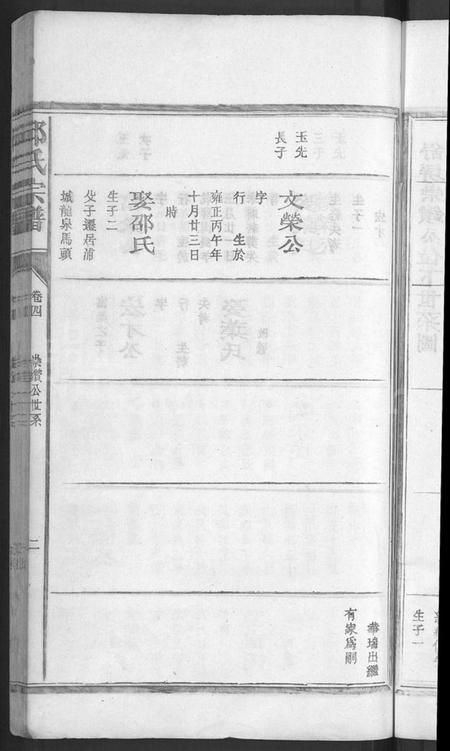 玉先
長子
文榮公
字
行　生於
雍正丙午年
十月廿三日
時
娶邵氏
生子二
父子遷居浦
城龍泉馬頭
華瑞出繼
有家爲嗣
氏宗譜
卷四
公世系
二
生子一